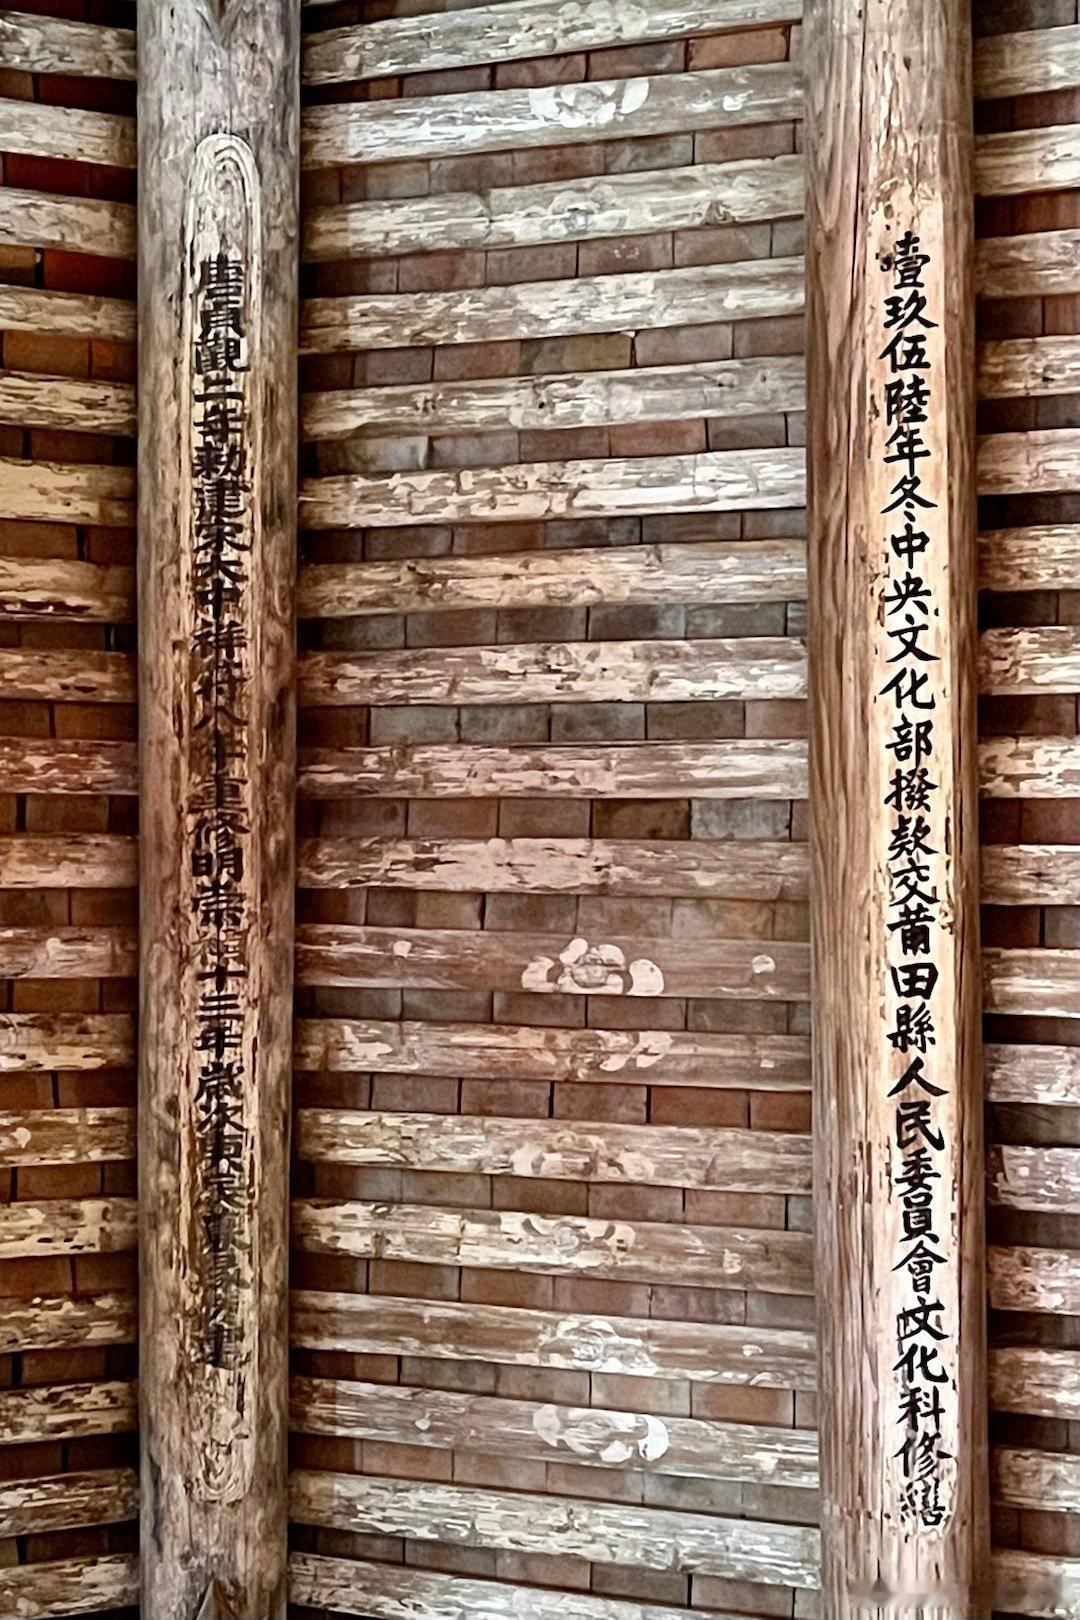 壹玖伍陸年冬中央文化部撥欵交莆田縣人民委員會文化科修繕
唐貞觀二年勅建宋大中祥符八年重修明崇禎十三年歲次庚辰募緣建